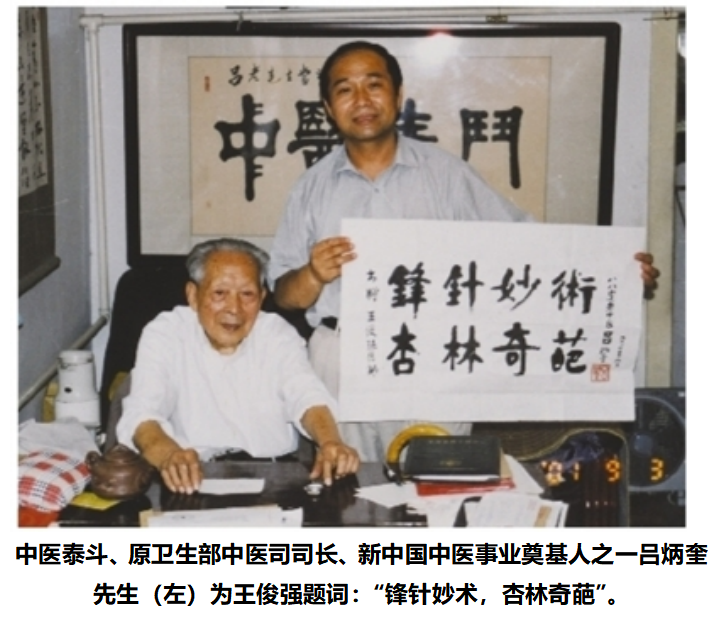 中醫
鬥
鋒針妙術
杏林奇葩
'01 9 3
中医泰斗、原卫生部中医司司长、新中国中医事业奠基人之一吕炳奎
先生（左）为王俊强题词：“锋针妙术，杏林奇葩”。